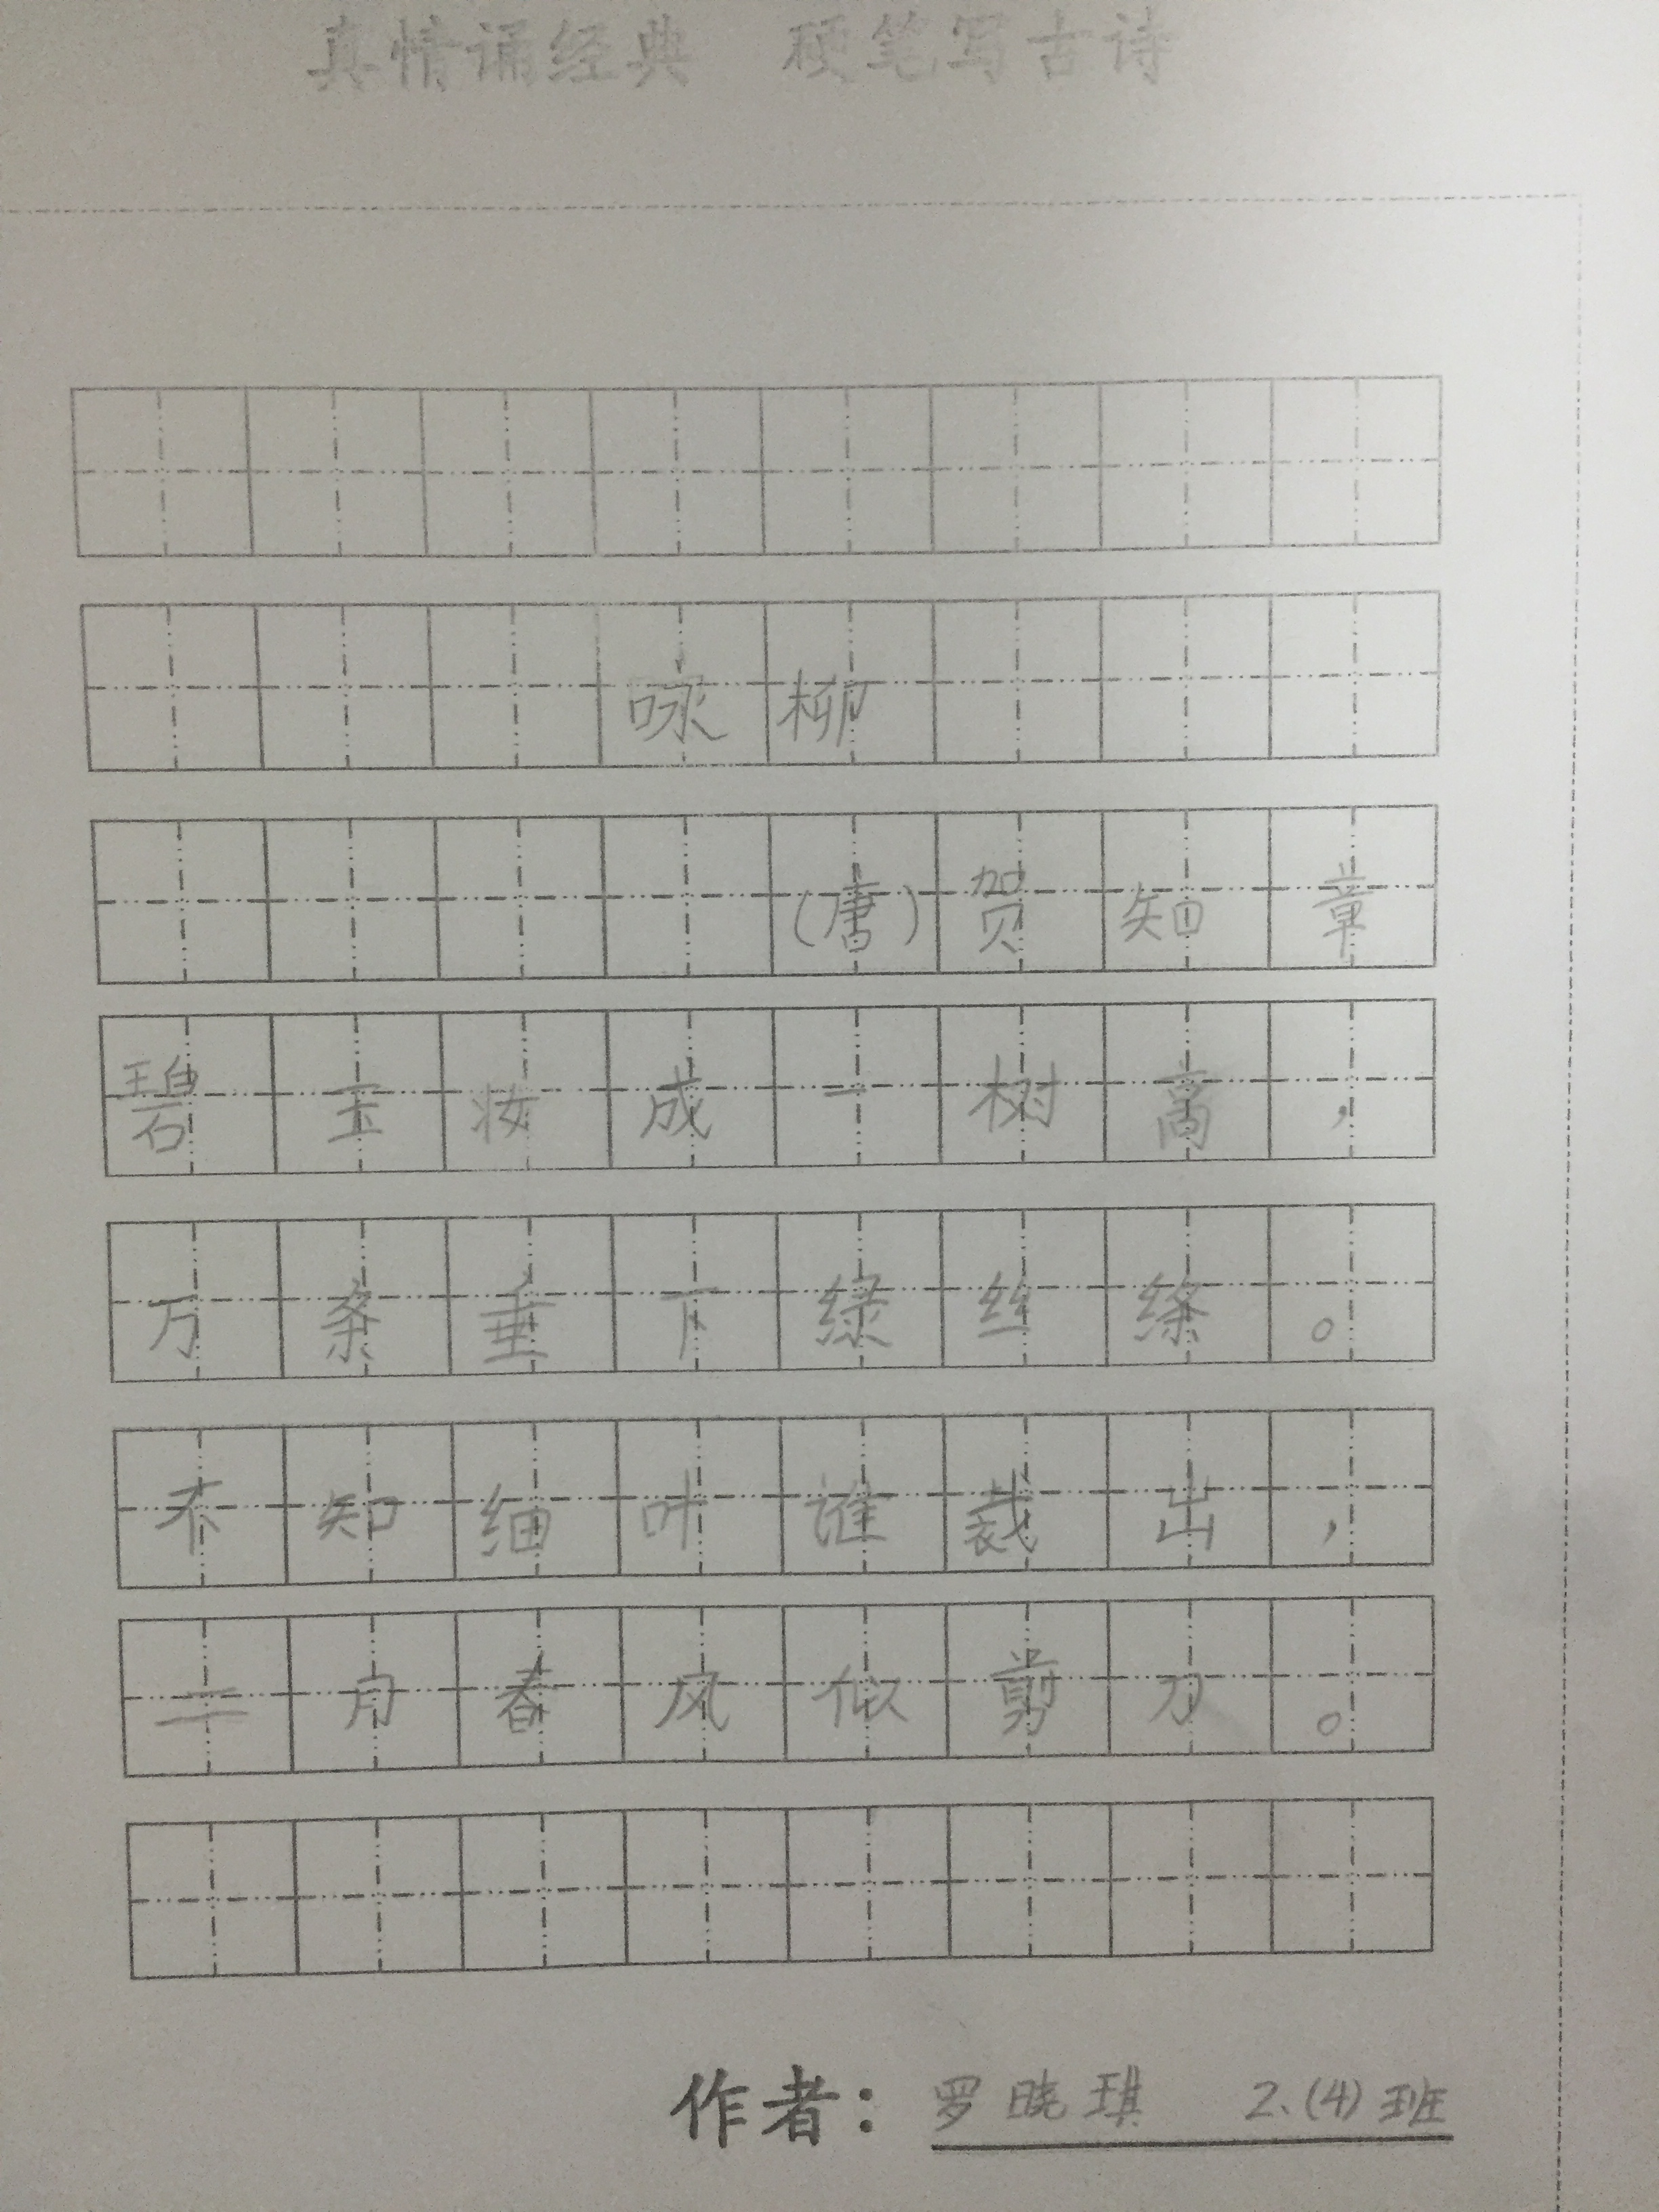 真情诵经典 硬笔写古诗
咏柳
(唐)贺知章
碧玉妆成一树高,
万条垂下绿丝绦。
不知细叶谁裁出,
二月春风似剪刀。
作者:罗晓琪 2.(4)班